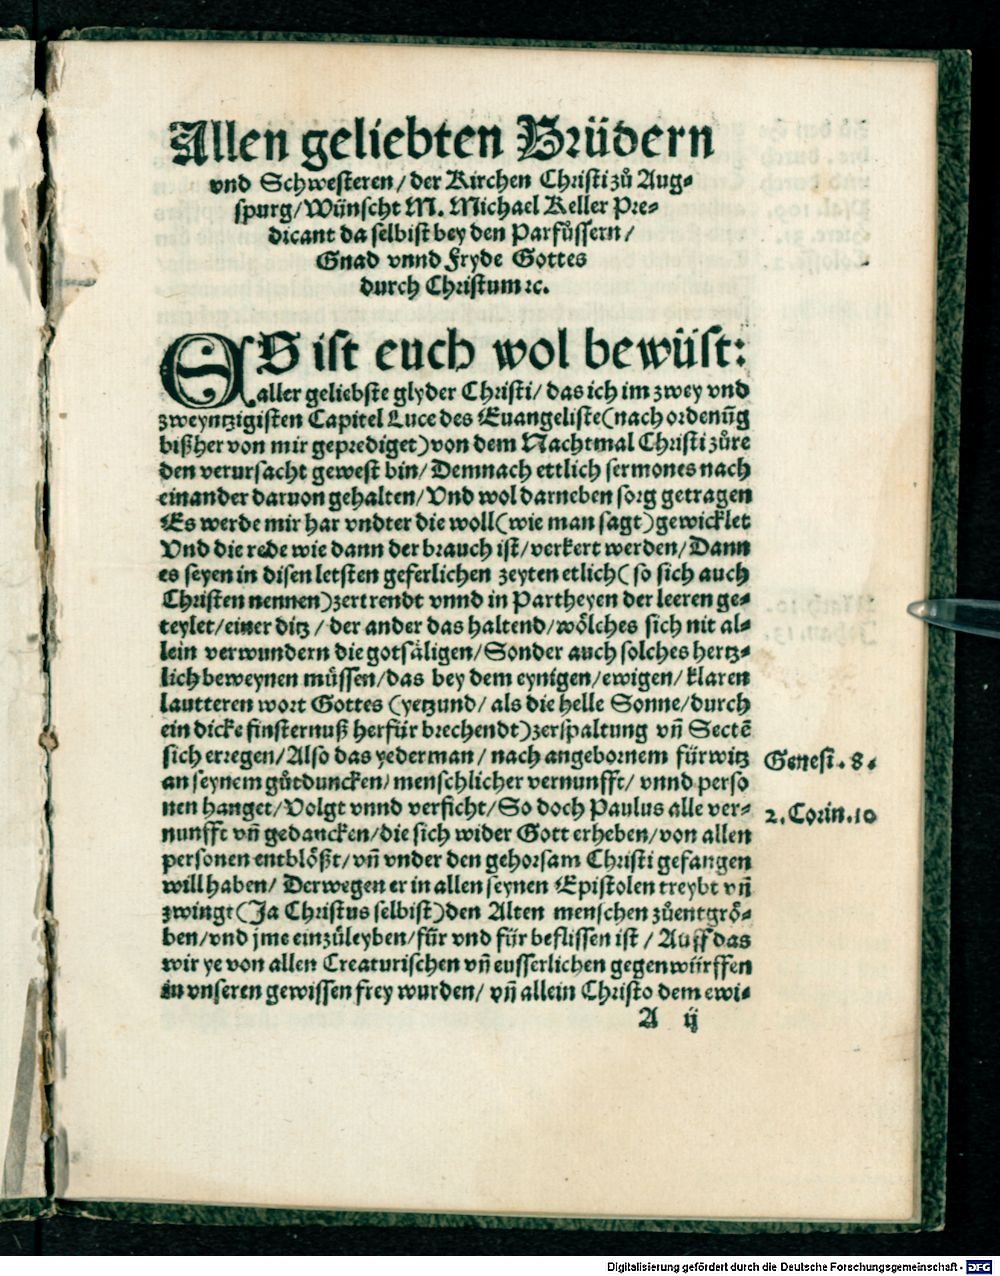 Allen geliebten Brüdern
vnd Schwesteren/ der Kirchen Christi zů Aug-
spurg/ Wünscht M. Michael Keller Pre-
dicant da selbist bey den Parfůssern/
Gnad vnnd Fryde Gottes
durch Christum ꝛc.
ES ist euch wol bewüst:
aller geliebste glyder Christi/ das ich im zwey vnd
zweyntzigisten Capitel Luce des Euangeliste (nach ordenūg
bißher von mir geprediget) von dem Nachtmal Christi zůre
den verursacht gewest bin/ Demnach ettlich sermones nach
einander daruon gehalten/ Vnd wol darneben sorg getragen
Es werde mir har vndter die woll (wie man sagt) gewicklet
Vnd die rede wie dann der brauch ist/ verkert werden/ Dann
es seyen in disen letsten geferlichen zeyten etlich (so sich auch
Christen nennen) zertrendt vnnd in Partheyen der leeren ge-
teylet/ einer ditz / der ander das haltend/ wölches sich nit al-
lein verwundern die gotsäligen/ Sonder auch solches hertz-
lich beweynen müssen/ das bey dem eynigen/ ewigen/ klaren
lautteren wort Gottes (yetzund/ als die helle Sonne/ durch
ein dicke finsternuß herfür brechendt) zerspaltung vñ Sectē
sich erregen/ Also das yederman/ nach angebornem fürwitz
an seynem gůtduncken/ menschlicher vernunfft/ vnnd perso
nen hanget/ Volgt vnnd verficht/ So doch Paulus alle ver-
nunfft vñ gedancken/ die sich wider Gott erheben/ von allen
personen entblößt/ vñ vnder den gehorsam Christi gefangen
will haben/ Derwegen er in allen seynen Epistolen treybt vñ
zwingt (Ja Christus selbist) den Alten menschen zůentgrö-
ben/ vnd jme einzůleyben/ für vnd für beflissen ist / Auff das
wir ye von allen Creaturischen vñ eusserlichen gegenwürffen
in vnseren gewissen frey wurden/ vñ allein Christo dem ewi-
A ij
Genesi. 8.
2. Corin. 10
Digitalisierung gefördert durch die Deutsche Forschungsgemeinschaft - DFG